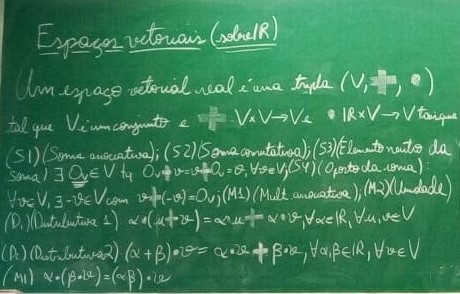 Espaços vetoriais (sobre ℝ)
Um espaço vetorial real é uma tripla (V, +, •)
tal que V é um conjunto e + : V×V→V e • ℝ×V→V tais que
(S1) (Soma associativa); (S2) (Soma comutativa); (S3) (Elemento neutro da
soma) ∃ 0ᵥ ∈ V tq 0ᵥ+v=v+0ᵥ=v, ∀v∈V; (S4) (Oposto da soma):
∀v∈V, ∃ -v∈V com v+(-v)=0ᵥ; (M1) (Mult. associativa); (M2) (Unidade)
(D1) (Distributiva 1) α•(u+v)=α•u+α•v, ∀α∈ℝ, ∀u,v∈V
(D2) (Distributiva 2) (α+β)•v=α•v+β•v, ∀α,β∈ℝ, ∀v∈V
(M1) α•(β•v)=(αβ)•v